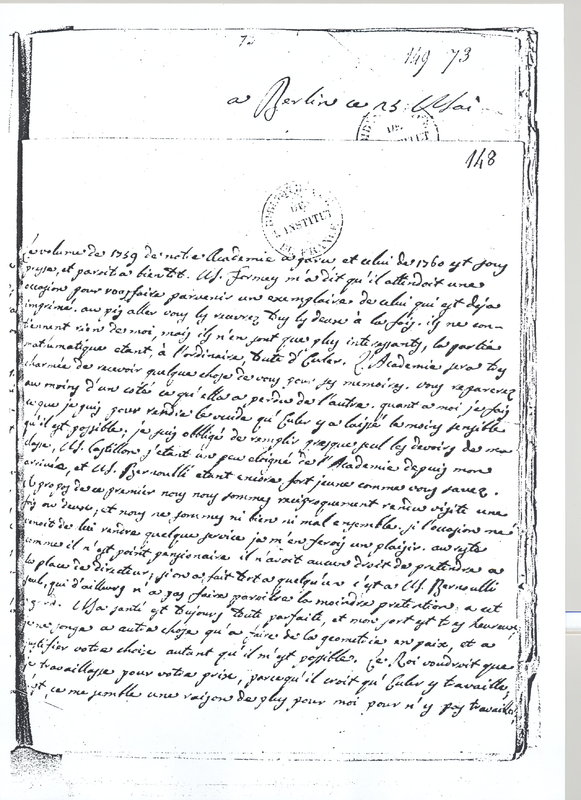 149 73
a Berlin ce 23 Mai
148
DE
L'INSTITUT
DE FRANCE
Le volume de 1759 de notre Academie a paru et celui de 1760 est sous
presse, et paroitra bientot. M. Formey m'a dit qu'il attendoit une
occasion pour vous faire parvenir un exemplaire de celui qui est deja
imprimé. au pis aller vous les recevrez tous les deux à la fois. ils ne con-
tiennent rien de moi, mais ils n'en sont que plus interessants, la partie
mathematique etant, à l'ordinaire, toute d'Euler. L'Academie sera tres
charmée de recevoir quelque chose de vous pour ses memoires. vous reparerez
au moins d'un coté ce qu'elle a perdu de l'autre. quant a moi je fais
ce que je puis pour rendre le vuide qu'Euler y a laissé le moins sensible
qu'il est possible, je suis obbligé de remplir presque seul les devoirs de ma
classe, M. Castillon s'etant un peu eloigné de l'Academie depuis mon
arrivée, et M. Bernoulli etant encore fort jeune comme vous savez.
A propos de ce premier nous nous sommes reciproquement rendu visite une
fois ou deux, et nous ne sommes ni bien ni mal ensemble. si l'occasion me
venoit de lui rendre quelque service je m'en ferois un plaisir. au reste
comme il n'est point pensionaire il n'avoit aucun droit de pretendre a
la place de directeur; si on a fait tort a quelqu'un c'est a M. Bernoulli
seul, qui d'ailleurs n'a pas faire paroitre la moindre pretention a cet
egard. Ma santé est toujours toute parfaite, et mon sort est tres heureux;
je ne songe a autre chose qu'a faire de la geometrie en paix, et a
justifier votre choix autant qu'il m'est possible. Le Roi voudroit que
je travaillasse pour votre prix, parce qu'il croit qu'Euler y travaille,
c'est ce me semble une raison de plus pour moi pour n'y pas travailler,